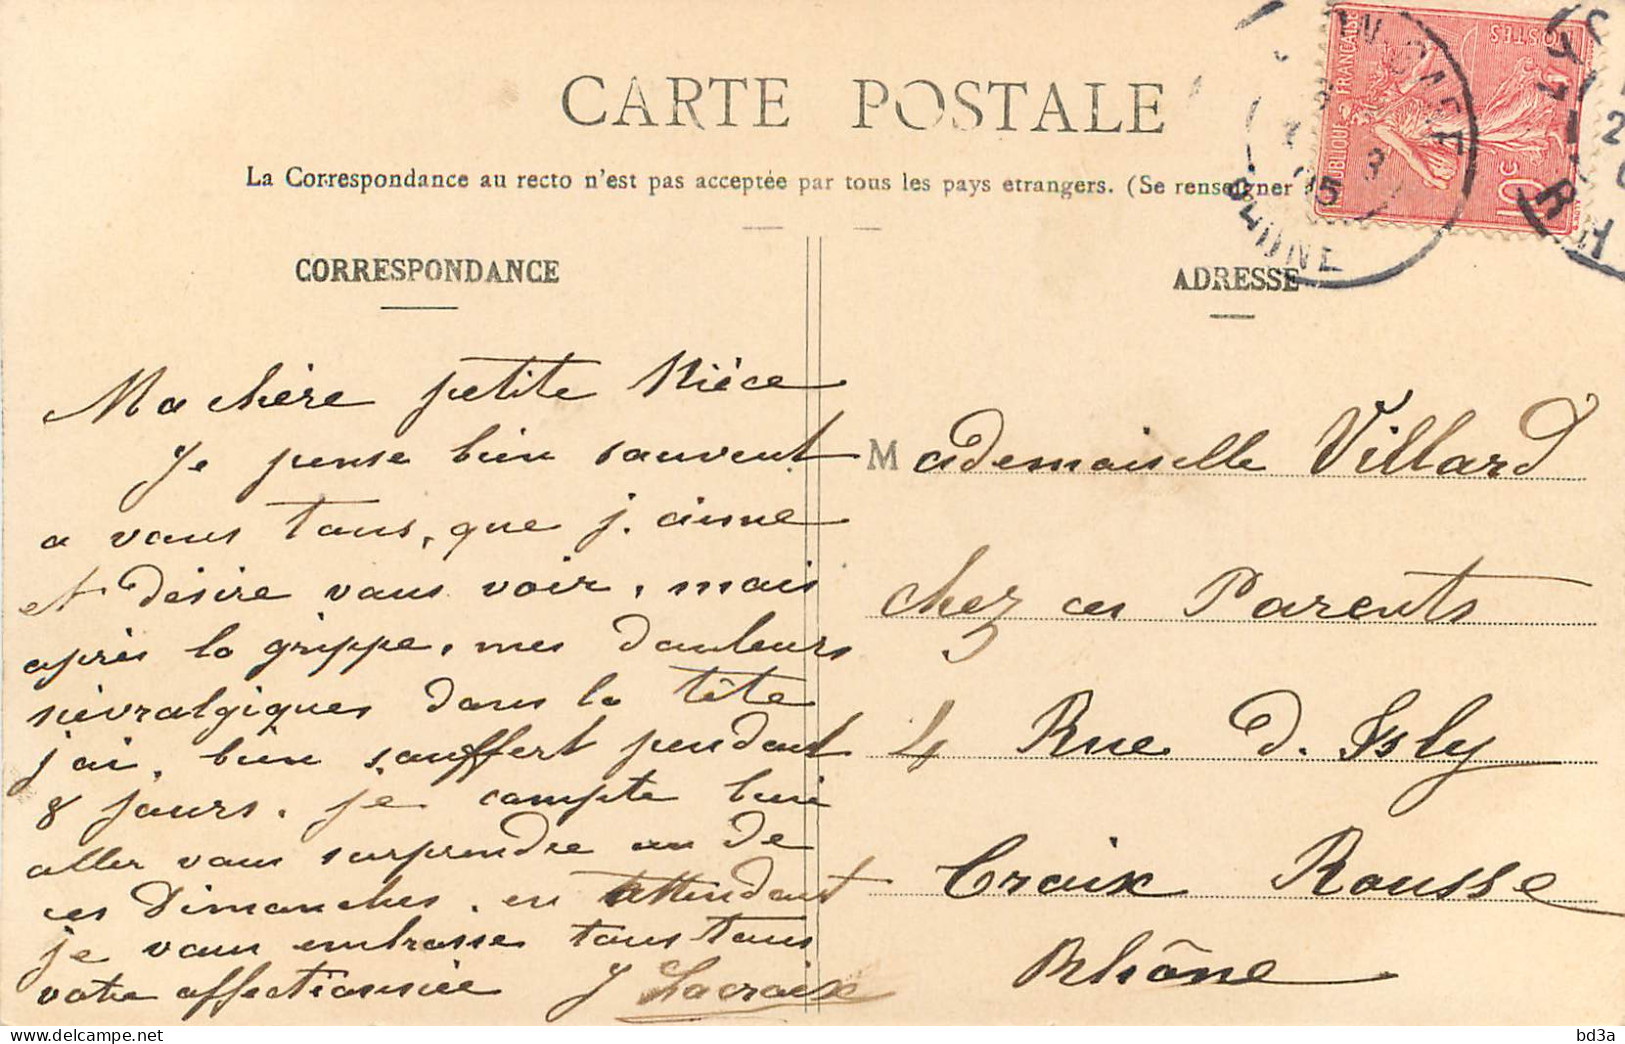 CARTE POSTALE
La Correspondance au recto n'est pas acceptée par tous les pays etrangers. (Se renseigner
CORRESPONDANCE
Ma chère petite Nièce
Je pense bien souvent
a vous tous, que j. aime
et désire vous voir, mais
après la grippe, mes douleurs
névralgiques dans la tête
j'ai, bien souffert pendant
8 jours. je compte bien
aller vous surprendre un de
ces Dimanches, en attendant
je vous embrasse tous tous
votre affectionnée J Lacroix
ADRESSE
Mademoiselle Villard
chez ces Parents
4 Rue d. Isly
Croix Rousse
Rhône
RÉPUBLIQUE FRANÇAISE
POSTES
10c
RHONE
bd3a